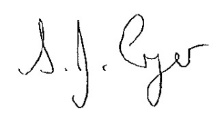 S. J. Cyer